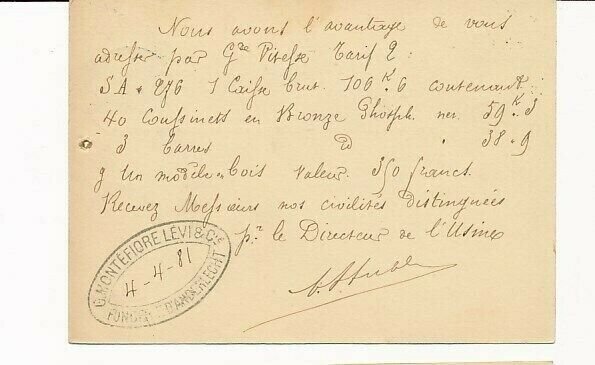 Nous avons l'avantage de vous
adresser par Gde Vitesse Tarif 2 :
SA * 276 1 Caisse brut. 106 K. 6 contenant
40 Coussinets en Bronze Phosph. net. 59 K. 3
3 barres id " 38 " 9
Un modèle bois valeur. 350 francs.
Recevez Messieurs nos civilités distinguées
pr. le Directeur de l'Usine
G. MONTEFIORE LÉVI & Cie
4-4-81
FONDERIE D'ANDERLECHT